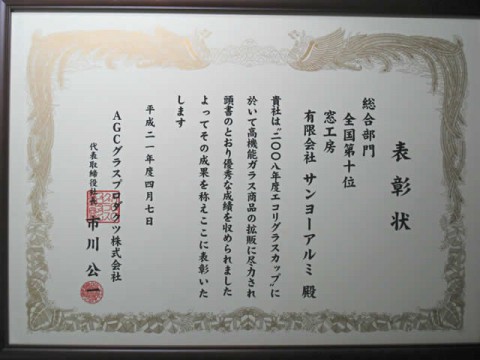 表彰状
総合部門
全国第十位
窓工房
有限会社 サンヨーアルミ 殿
貴社は“二〇〇八年度エコリグラスカップ”に
於いて高機能ガラス商品の拡販に尽力され
頭書のとおり優秀な成績を収められました
よってその成果を称えここに表彰いた
します
平成二一年度四月七日
AGCグラスプロダクツ株式会社
代表取締役社長 市川 公一